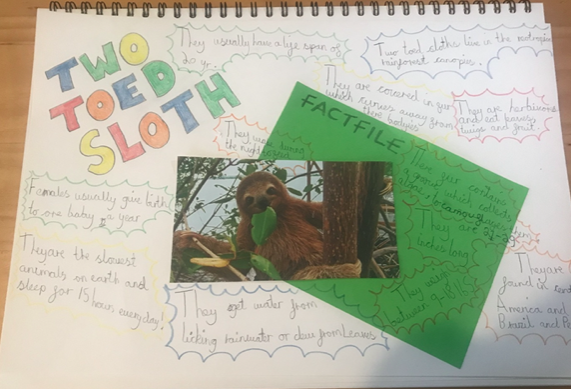 TWO
TOED
SLOTH
They usually have a life span of
20 y.
Two toed sloths live in the
rainforest canopies.
They are covered in fur
which runs away from
their bodys.
They are herbivores
and eat leaves
twigs and fruit.
FACTFILE
They
the night
Females usually give birth
to one baby a year
Their fur contains
which collects
They are
inches long.
They weigh
between 9-
They are the slowest
animals on earth and
sleep for 15 hour, every day!
They get water from
licking rainwater or dew from leaves
They are
found in
America and
Brazil and Pe